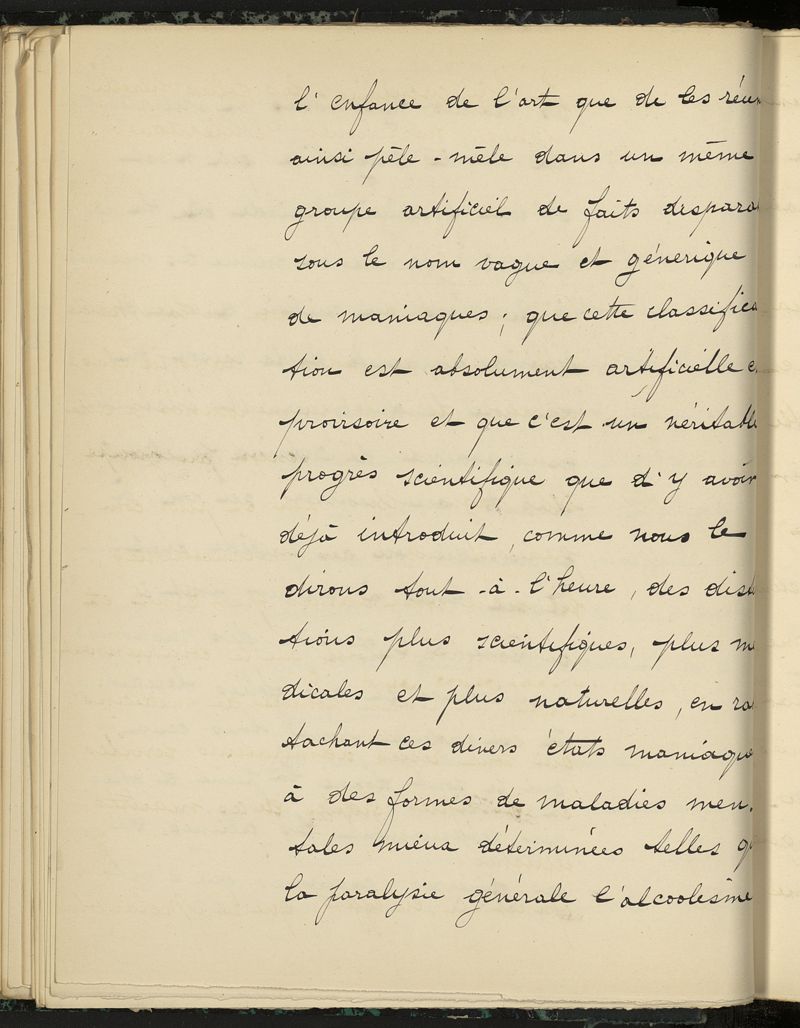 l'enfance de l'art que de les réun
ainsi pêle-mêle dans un même
groupe artificiel de faits dispara
sous le nom vague et générique
de maniaques; que cette classifica
tion est absolument artificielle e
provisoire et que c'est un véritable
progrès scientifique que d'y avoir
déjà introduit, comme nous le
dirons tout-à-l'heure, des dist
tions plus scientifiques, plus mé
dicales et plus naturelles, en rat
tachant ces divers états maniaque
à des formes de maladies men-
tales mieux déterminées telles q
la paralysie générale l'alcoolisme